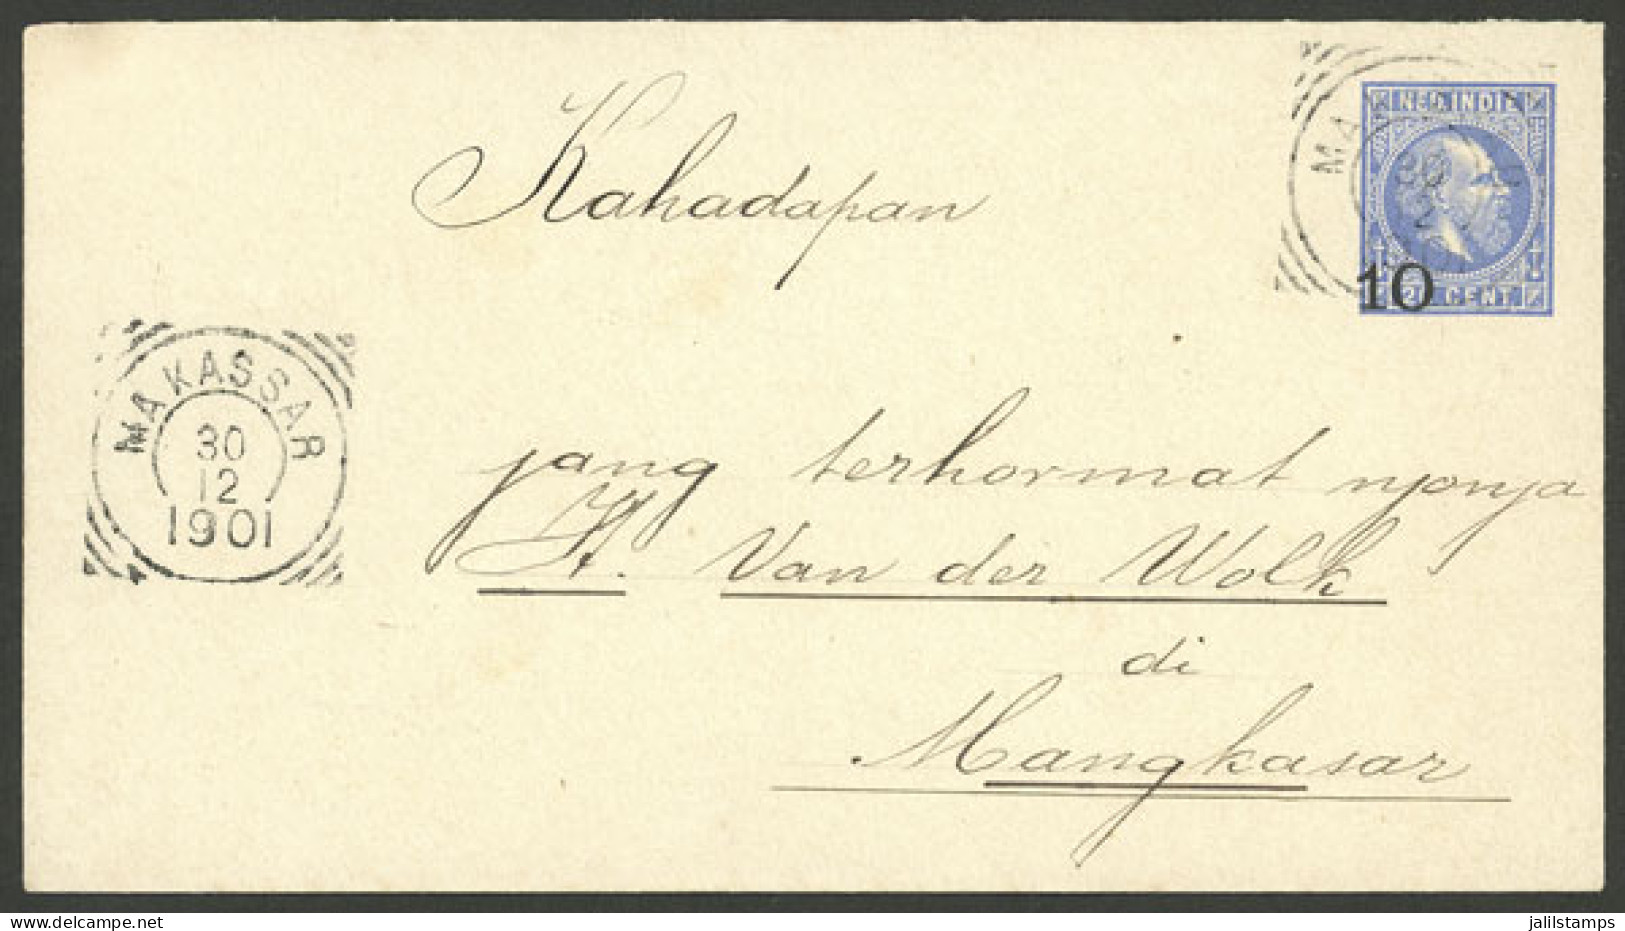 Kahadapan
NED. INDIE
10
CENT
MAKASSAR
30
12
1901
jang terhormat njonja
H. Van der Wolk
di
Mangkasar
delcampe.net
jalilstamps